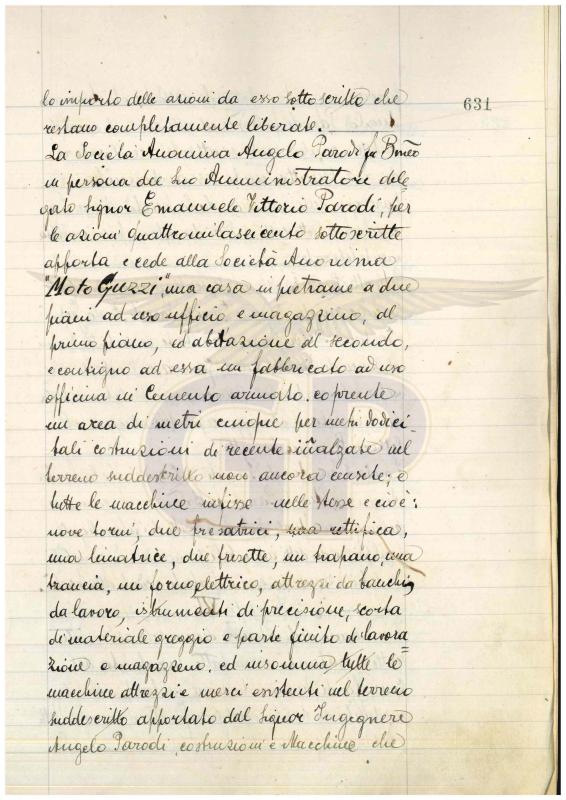 631
lo importo delle azioni da esso sottoscritte che
restano completamente liberate.
La Società Anonima Angelo Parodi fu Bmeo
in persona del suo Amministratore dele
gato Signor Emanuele Vittorio Parodi, per
le azioni quattromilaseicento sottoscritte
apporta e cede alla Società Anonima
"Moto Guzzi", una casa in pietrame a due
piani ad uso ufficio e magazzino, al
primo piano, ed abitazione al secondo,
e contigno ad essa un fabbricato ad uso
officina in Cemento armato. coprente
un area di metri cinque per metri dodici-
tali costruzioni di recente inalzate nel
terreno suddescritto non ancora censite; e
tutte le macchine infisse nelle stesse e cioè:
nove torni, due fresatrici, una rettifica,
una limatrice, due fresette, un trapano, una
trancia, un forno elettrico, attrezzi da banchi,
da lavoro, istrumenti di precisione, scorta
di materiale greggio e parte finito di lavora=
zione e magazzeno. ed insomma tutte le
macchine attrezzi e merci esistenti nel terreno
suddescritto apportato dal Signor Ingegnere
Angelo Parodi costruzioni e Macchine che
GP